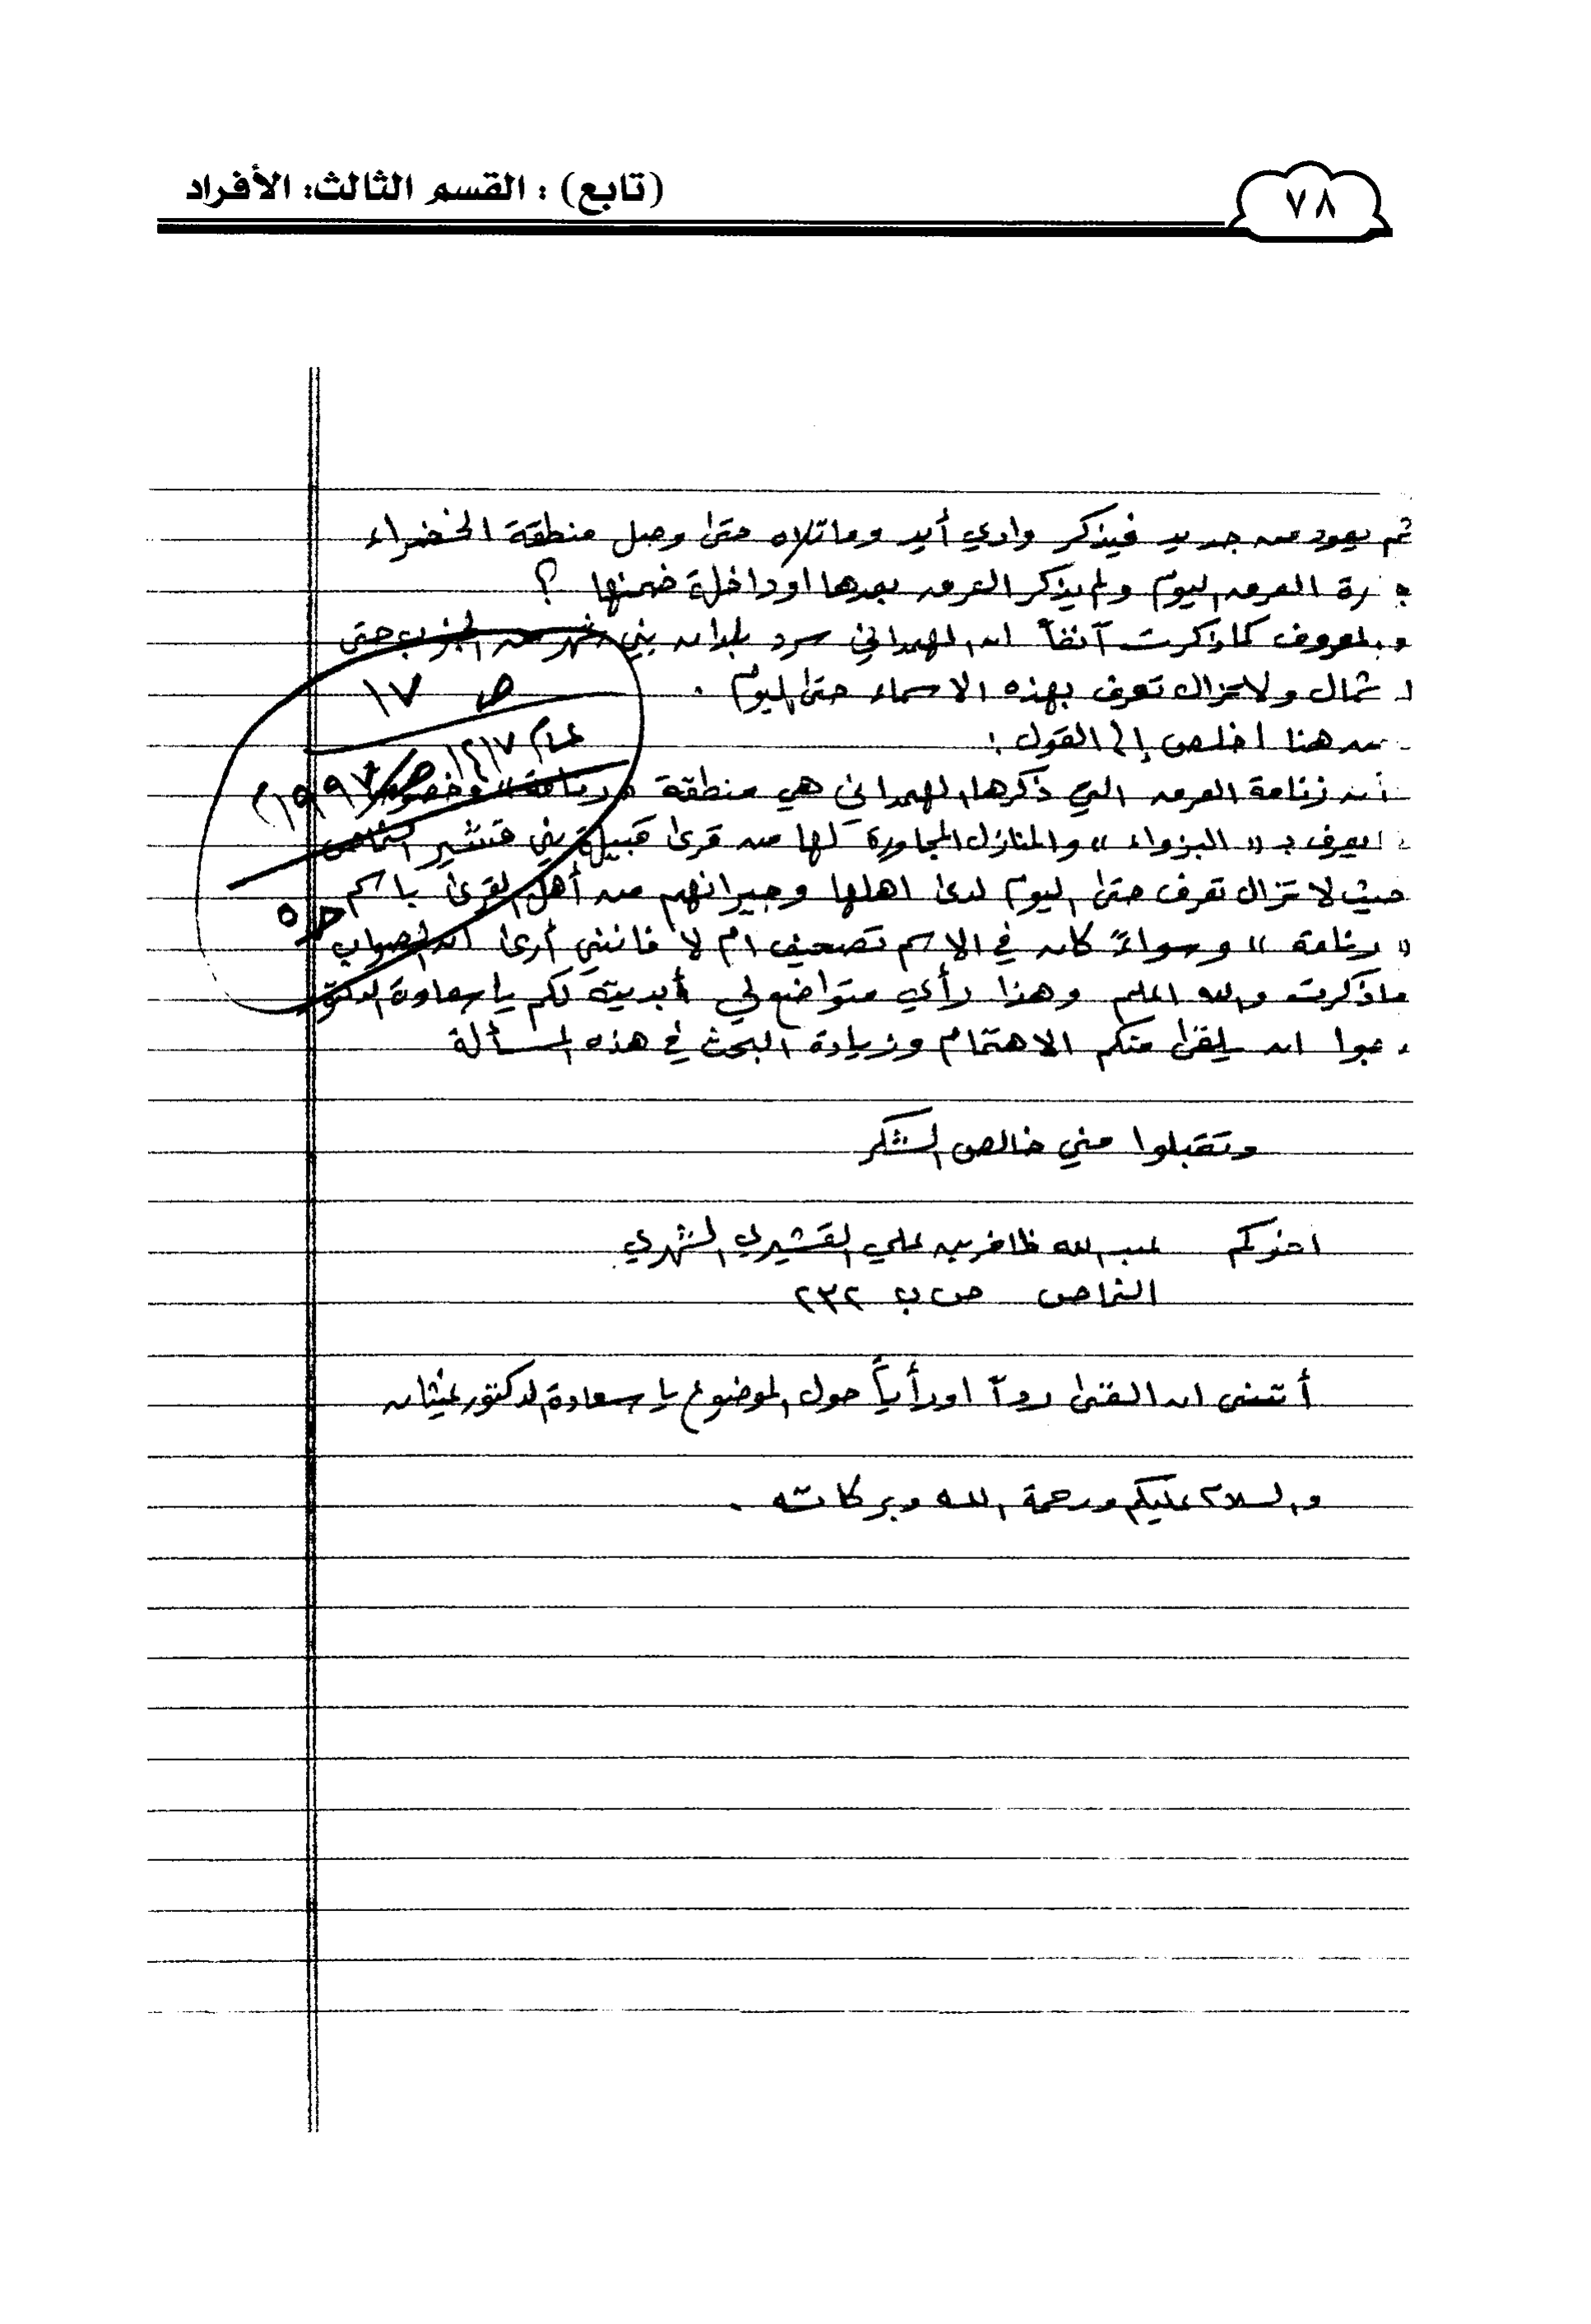 ٧٨
(تابع) : القسم الثالث: الأفراد
ثم يعود من جديد فيذكر وادي أيد وماتلاه حتى وصل منطقة الخضراء
رة العرق اليوم ولم يذكر العرق بعدها او داخلة ضمنها ؟
والمعروف كما ذكرت آنفاً ان الهمداني سرد بلدان بني شهر من الجنوب حتى
شمال ولا تزال تعرف بهذه الاسماء حتى اليوم .
من هنا اخلص إلى القول :
أن زنامة العرق التي ذكرها الهمداني هي منطقة « رنامة » وخصوصاً
يعرف بـ « البزواء » والمنازل المجاورة لها من قرى قبيلة بني قشير النماص
حيث لا تزال تعرف حتى اليوم لدى اهلها وجيرانهم من أهل القرى باسم
« رنامة » وسواءً كان في الاسم تصحيف ام لا فانني أرى ان الصواب
ماذكرت والله اعلم وهذا رأي متواضع لي أبديته لكم يا سعادة الدكتو
ان يلقى منكم الاهتمام وزيادة البحث في هذه المسألة
ص ١٧
عام ١٤١٧
١٩٩٧م
ص ٥
وتقبلوا مني خالص الشكر
اخوكم عبدالله ظافر بن علي القشيري الشهري
النماص ص ب ٢٣٢
أتمنى ان القى رداً او رأياً حول الموضوع يا سعادة الدكتور غيثان
والسلام عليكم ورحمة الله وبركاته .